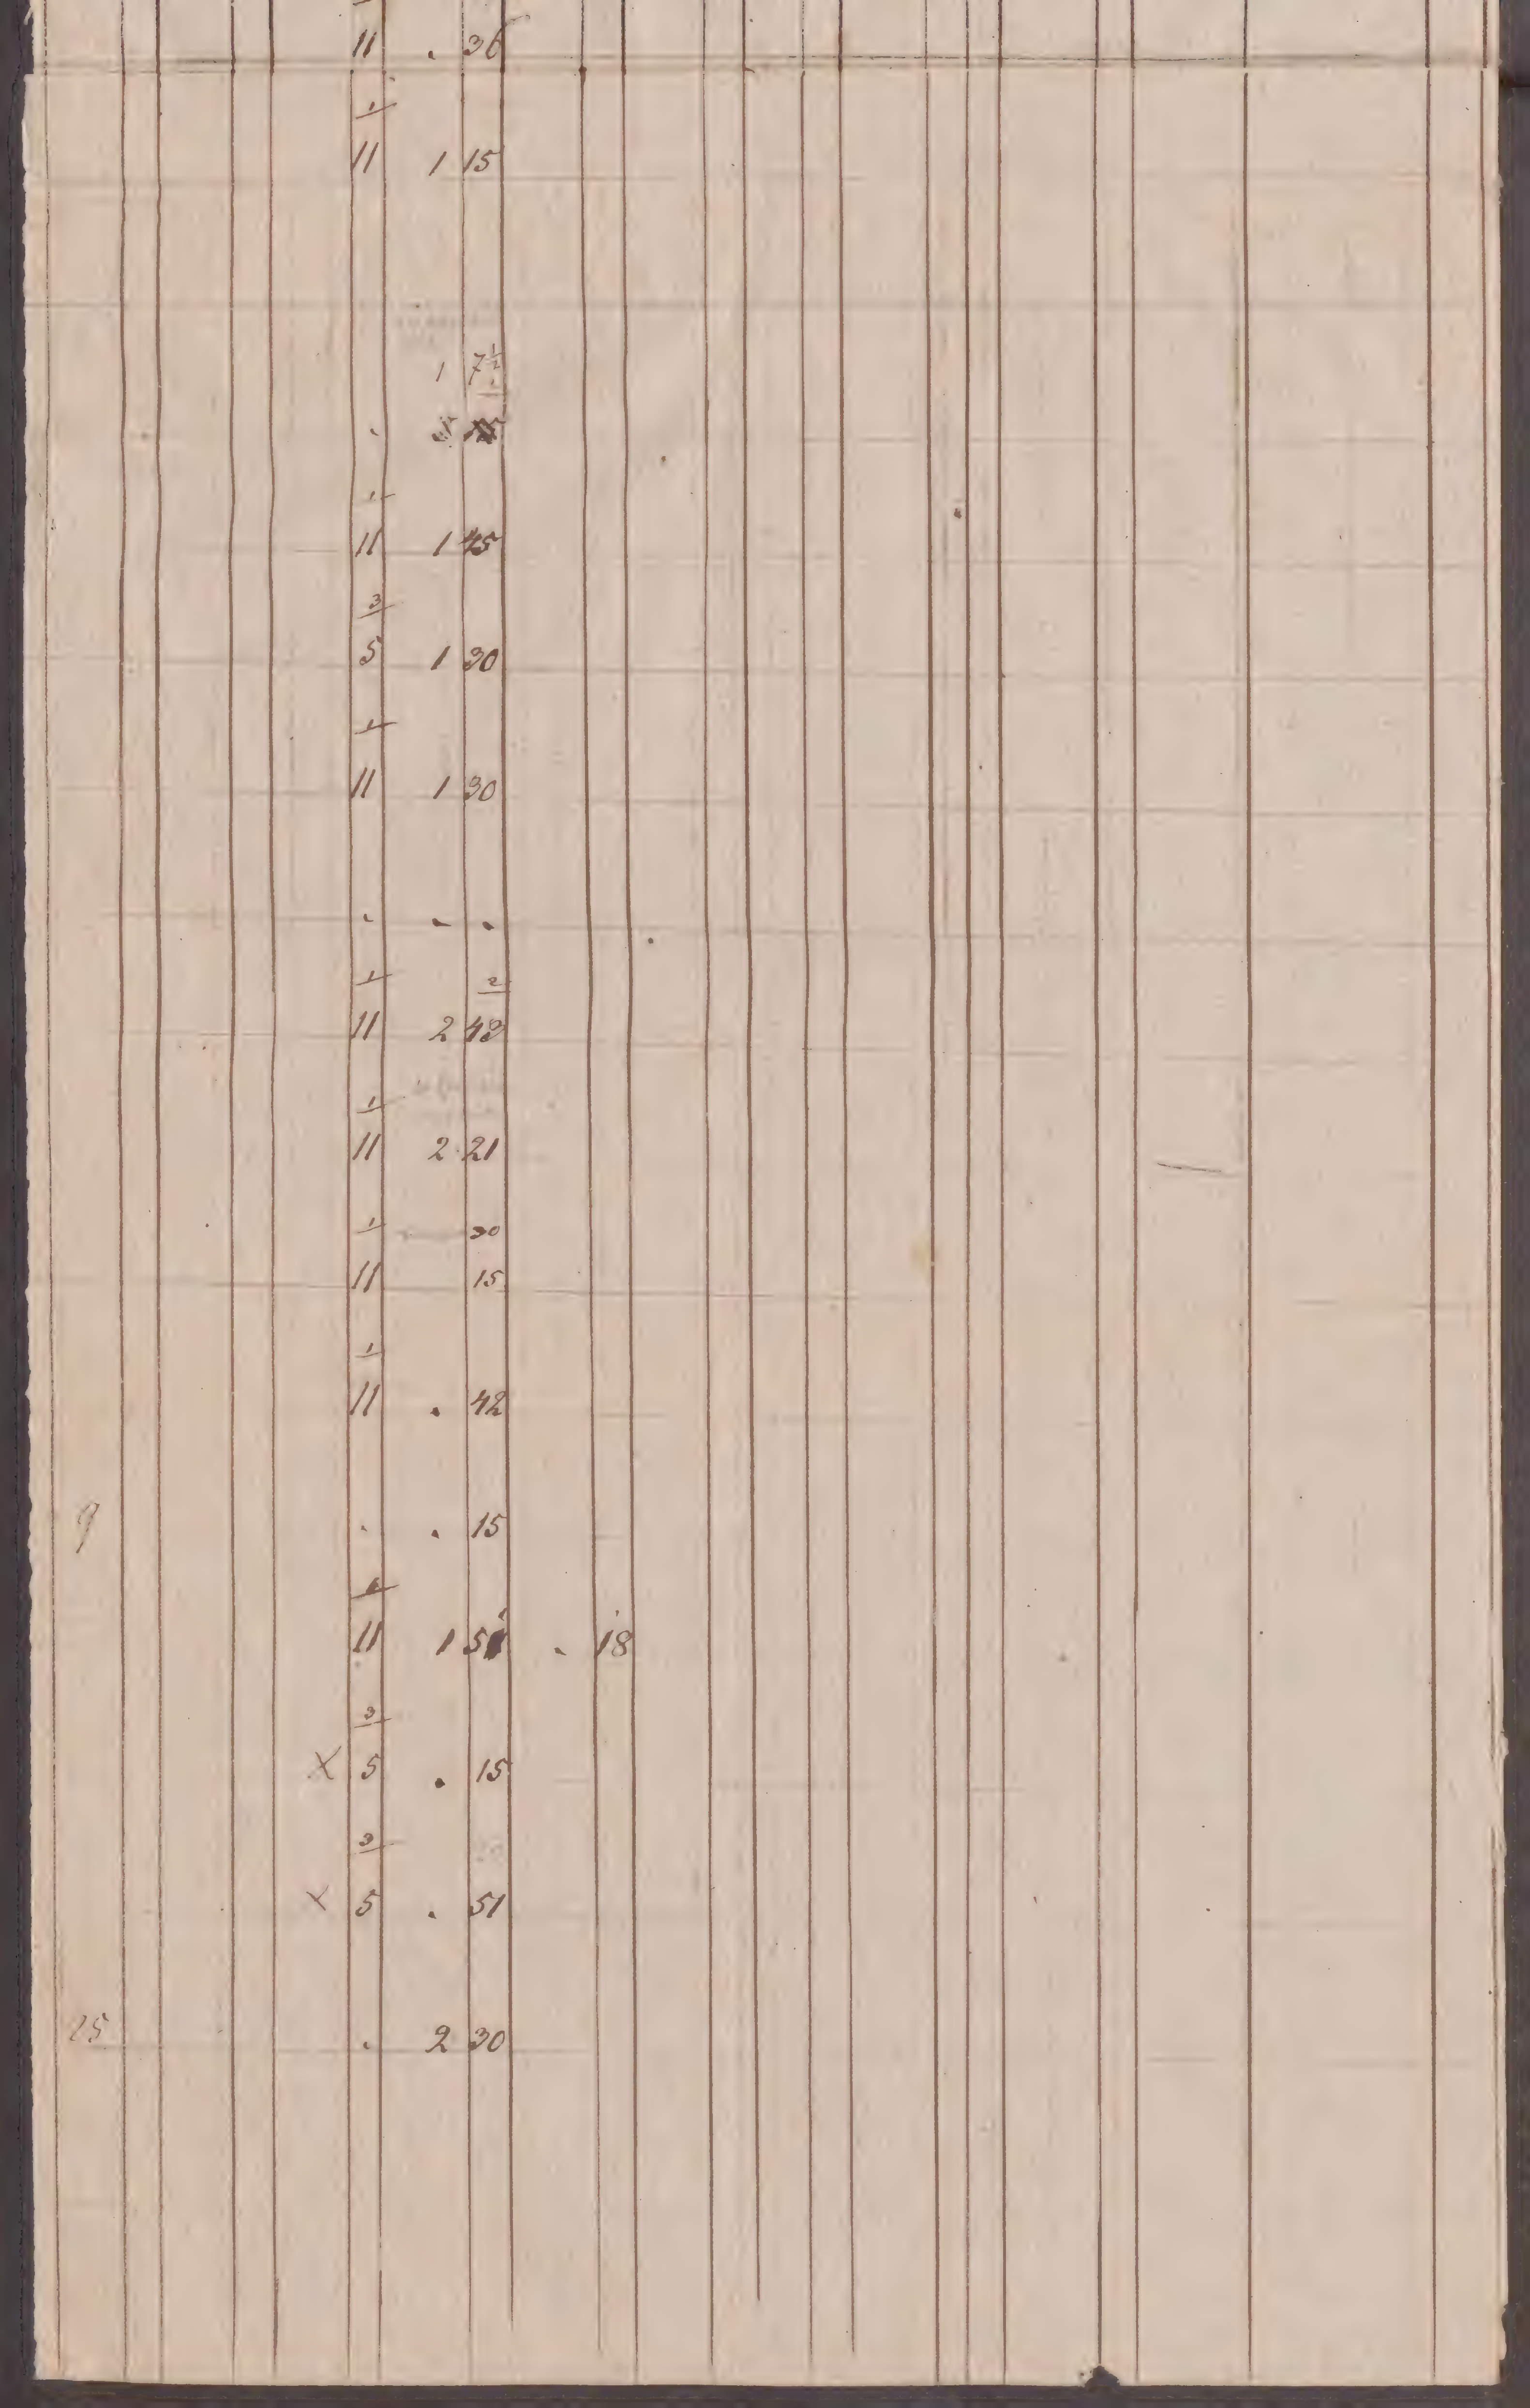 11 . 36
1
11 1 15
1 7½
.
1
11 1 45
3
5 1 30
1
11 1 30
. . .
1 2
11 2 43
1
11 2 21
1 30
11 15
1
11 . 42
9 . . 15
1
11 1 . 18
3
X 5 . 15
3
X 5 . 51
25 . 2 30